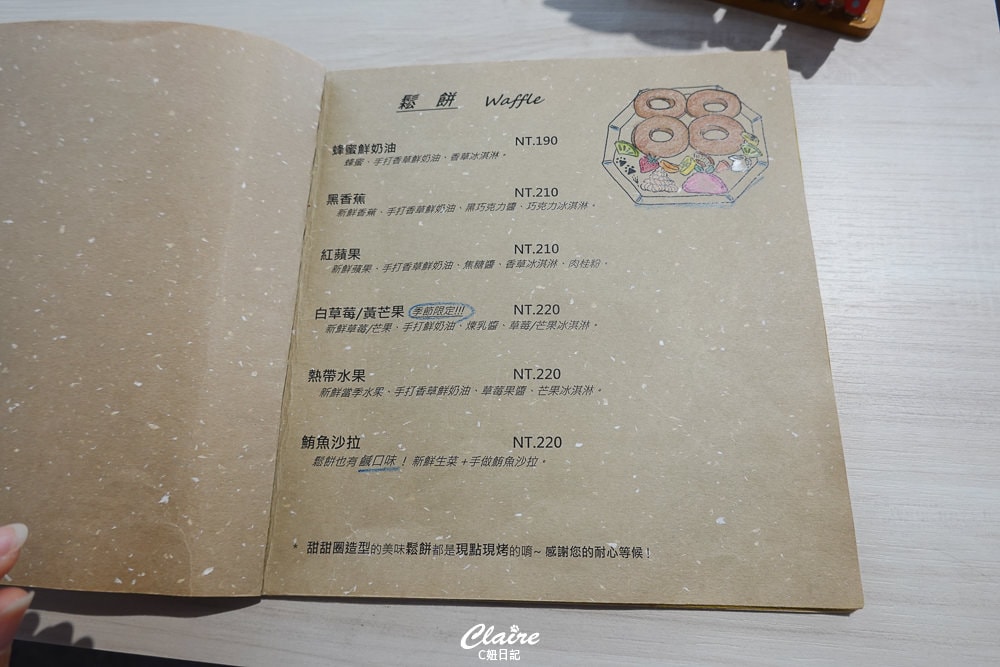 鬆 餅 Waffle
蜂蜜鮮奶油 NT.190
蜂蜜、手打香草鮮奶油、香草冰淇淋。
黑香蕉 NT.210
新鮮香蕉、手打香草鮮奶油、黑巧克力醬、巧克力冰淇淋。
紅蘋果 NT.210
新鮮蘋果、手打香草鮮奶油、焦糖醬、香草冰淇淋、肉桂粉。
白草莓/黃芒果 季節限定!!! NT.220
新鮮草莓/芒果、手打鮮奶油、煉乳醬、草莓/芒果冰淇淋。
熱帶水果 NT.220
新鮮當季水果、手打香草鮮奶油、草莓果醬、芒果冰淇淋。
鮪魚沙拉 NT.220
鬆餅也有鹹口味！新鮮生菜+手做鮪魚沙拉。
* 甜甜圈造型的美味鬆餅都是現點現烤的唷~ 感謝您的耐心等候！
Claire
C妞日記